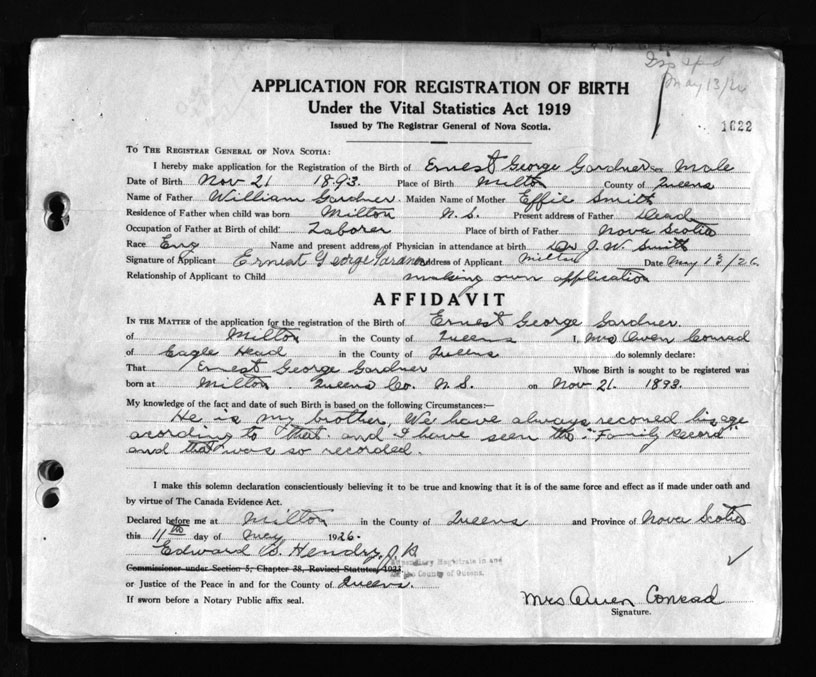 May 13/26
APPLICATION FOR REGISTRATION OF BIRTH
Under the Vital Statistics Act 1919
Issued by The Registrar General of Nova Scotia.
1622
TO THE REGISTRAR GENERAL OF NOVA SCOTIA:
I hereby make application for the Registration of the Birth of Ernest George Gardner sex Male
Date of Birth Nov 21 1893. Place of Birth Milton County of Queens
Name of Father William Gardner. Maiden Name of Mother Effie Smith
Residence of Father when child was born Milton N. S. Present address of Father Dead
Occupation of Father at Birth of child Laborer Place of birth of Father Nova Scotia
Race Eng Name and present address of Physician in attendance at birth Dr J. W. Smith
Signature of Applicant Ernest George Gardner Address of Applicant Milton Date May 13/26
Relationship of Applicant to Child making own application
AFFIDAVIT
IN THE MATTER of the application for the registration of the Birth of Ernest George Gardner.
of Milton in the County of Queens I, Mrs Owen Conrad
of Eagle Head in the County of Queens do solemnly declare:
That Ernest George Gardner Whose Birth is sought to be registered was
born at Milton. Queens Co. N. S. on Nov 21. 1893.
My knowledge of the fact and date of such Birth is based on the following Circumstances:—
He is my brother. We have always reconed his age
acording to that. and I have seen the "Family Record"
and that was so recorded.
I make this solemn declaration conscientiously believing it to be true and knowing that it is of the same force and effect as if made under oath and
by virtue of The Canada Evidence Act.
Declared before me at Milton in the County of Queens and Province of Nova Scotia
this 11th day of May 1926.
Edward S. Hendry J.P.
Stipendiary Magistrate in and
for the County of Queens.
Commissioner under Section 5, Chapter 38, Revised Statutes, 1923
or Justice of the Peace in and for the County of Queens.
If sworn before a Notary Public affix seal.
Mrs Owen Conrad
Signature.